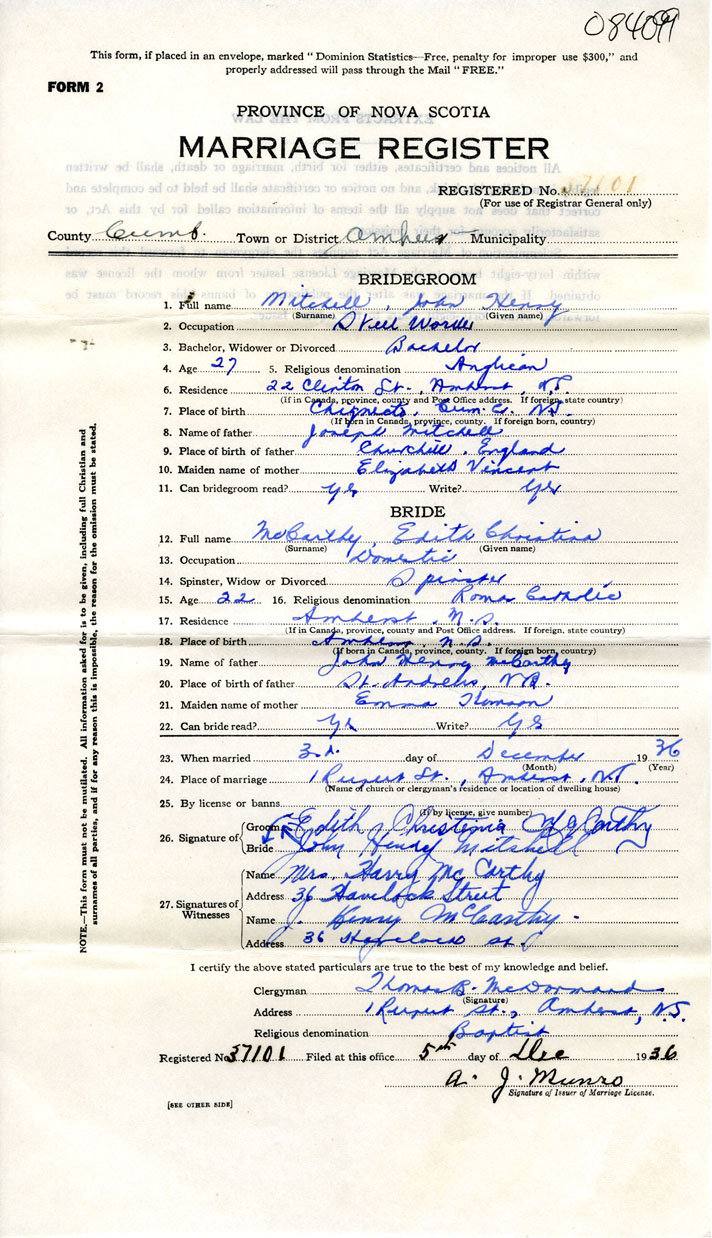 08409
This form, if placed in an envelope, marked "Dominion Statistics—Free, penalty for improper use $300," and
properly addressed will pass through the Mail "FREE."
FORM 2
PROVINCE OF NOVA SCOTIA
MARRIAGE REGISTER
REGISTERED No. 37101
(For use of Registrar General only)
County Cumb. Town or District Amherst Municipality
BRIDEGROOM
1. Full name Mitchell, John Henry
(Surname) (Given name)
2. Occupation Steel Worker
3. Bachelor, Widower or Divorced Bachelor
4. Age 27 5. Religious denomination Anglican
6. Residence 22 Clinton St., Amherst, N.S.
(If in Canada, province, county and Post Office address. If foreign, state country)
7. Place of birth Chignecto, Cum. Co. N.S.
(If born in Canada, province, county. If foreign born, country)
8. Name of father Joseph Mitchell
9. Place of birth of father Churchill, England
10. Maiden name of mother Elizabeth Vincent
11. Can bridegroom read? yes Write? yes
BRIDE
12. Full name McCarthy, Edith Christina
(Surname) (Given name)
13. Occupation Domestic
14. Spinster, Widow or Divorced Spinster
15. Age 22 16. Religious denomination Roman Catholic
17. Residence Amherst, N.S.
(If in Canada, province, county and Post Office address. If foreign. state country)
18. Place of birth Amherst, N.S.
(If born in Canada, province, county. If foreign born, country)
19. Name of father John Henry McCarthy
20. Place of birth of father St. Andrews, N.B.
21. Maiden name of mother Emma Thomson
22. Can bride read? Yes Write? Yes
23. When married 3rd. day of December 1936
(Month) (Year)
24. Place of marriage 1 Rupert St., Amherst, N.S.
(Name of church or clergyman's residence or location of dwelling house)
25. By license or banns
(If by license, give number)
26. Signature of Groom Edith Christenia McCarthy
Bride John Henry Mitchell
27. Signatures of Witnesses
Name Mrs. Harry McCarthy
Address 36 Havelock Street
Name J. Henry McCarthy.
Address 36 Havelock St.
I certify the above stated particulars are true to the best of my knowledge and belief.
Clergyman Thomas B. McDormand
(Signature)
Address 1 Rupert St., Amherst, N.S.
Religious denomination Baptist
Registered No. 37101 Filed at this office 5th day of Dec 1936
A. J. Munro
Signature of Issuer of Marriage License.
[SEE OTHER SIDE]
NOTE.—This form must not be mutilated. All information asked for is to be given, including full Christian and
surnames of all parties, and if for any reason this is impossible, the reason for the omission must be stated.